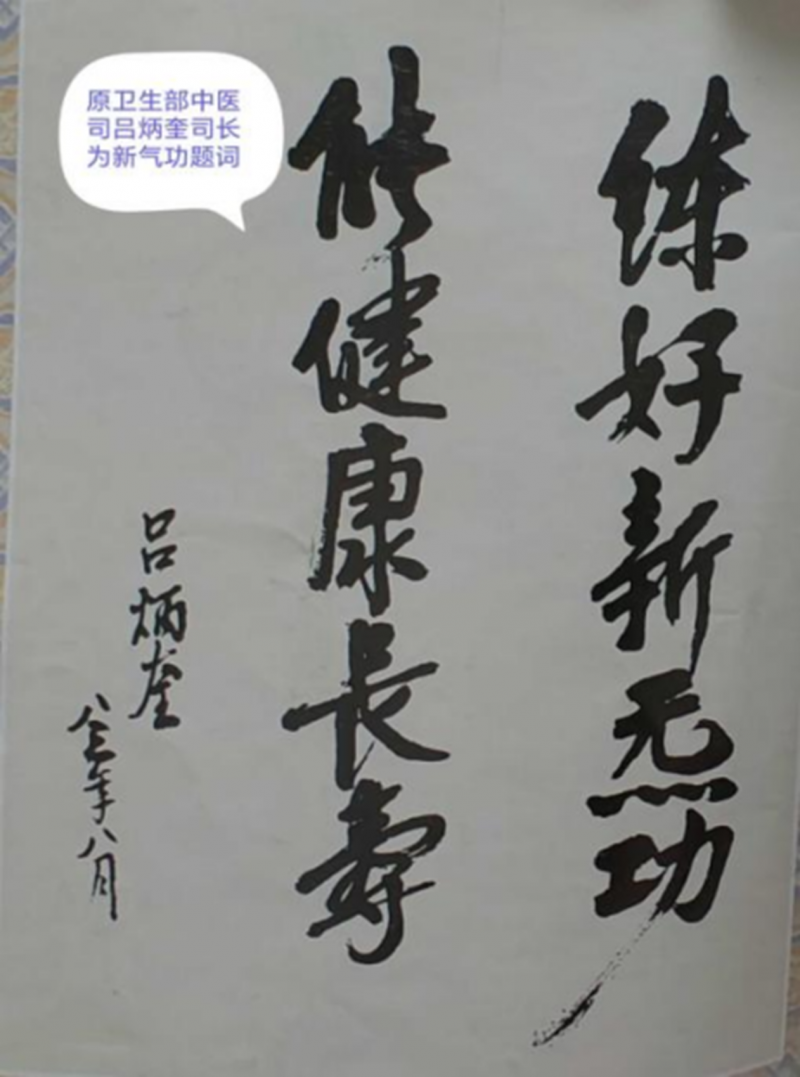 练好新炁功
能健康长寿
吕炳奎
八三年八月
原卫生部中医
司吕炳奎司长
为新气功题词